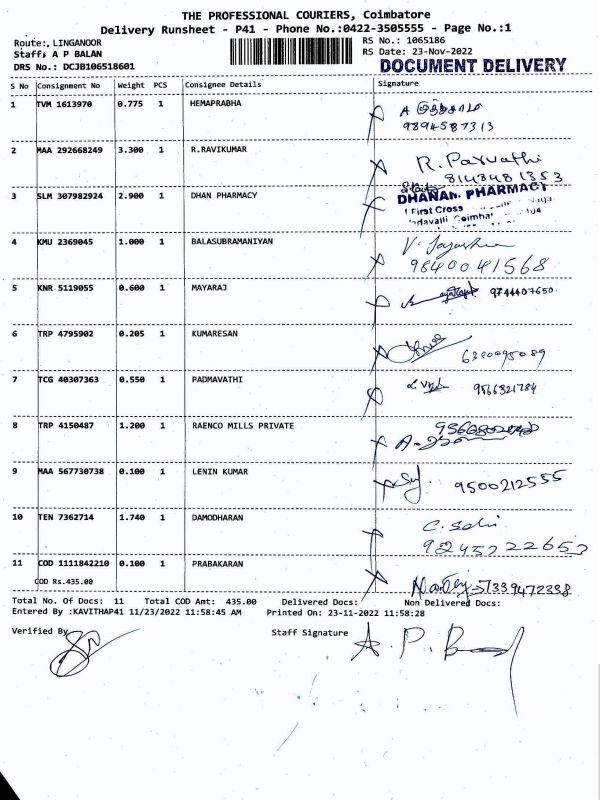 THE PROFESSIONAL COURIERS, Coimbatore
Delivery Runsheet - P41 - Phone No.:0422-3505555 - Page No.:1
Route:, LINGANOOR RS No.: 1065186
Staff: A P BALAN RS Date: 23-Nov-2022
DRS No.: DCJB106518601 DOCUMENT DELIVERY
S No Consignment No Weight PCS Consignee Details Signature
1 TVM 1613970 0.775 1 HEMAPRABHA
9894587313
2 MAA 292668249 3.300 1 R.RAVIKUMAR R. Parvathi
8148481353
3 SLM 307982924 2.900 1 DHAN PHARMACY DHANAM PHARMACY
1 First Cross
4 KMU 2369045 1.000 1 BALASUBRAMANIYAN
9840041568
5 KNR 5119055 0.600 1 MAYARAJ 9744407650
6 TRP 4795902 0.205 1 KUMARESAN
7 TCG 40307363 0.550 1 PADMAVATHI 9566321784
8 TRP 4150487 1.200 1 RAENCO MILLS PRIVATE
9 MAA 567730738 0.100 1 LENIN KUMAR 9500212555
10 TEN 7362714 1.740 1 DAMODHARAN
9245722653
11 COD 1111842210 0.100 1 PRABAKARAN
COD Rs.435.00 7339472338
Total No. Of Docs: 11 Total COD Amt: 435.00 Delivered Docs: Non Delivered Docs:
Entered By :KAVITHAP41 11/23/2022 11:58:45 AM Printed On: 23-11-2022 11:58:28
Verified By Staff Signature A. P. B